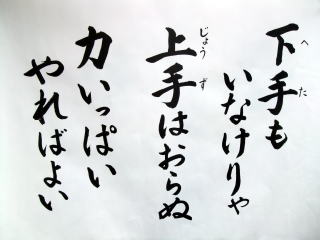 下手も
いなけりゃ
上手はおらぬ
力いっぱい
やればよい
へた
じょうず